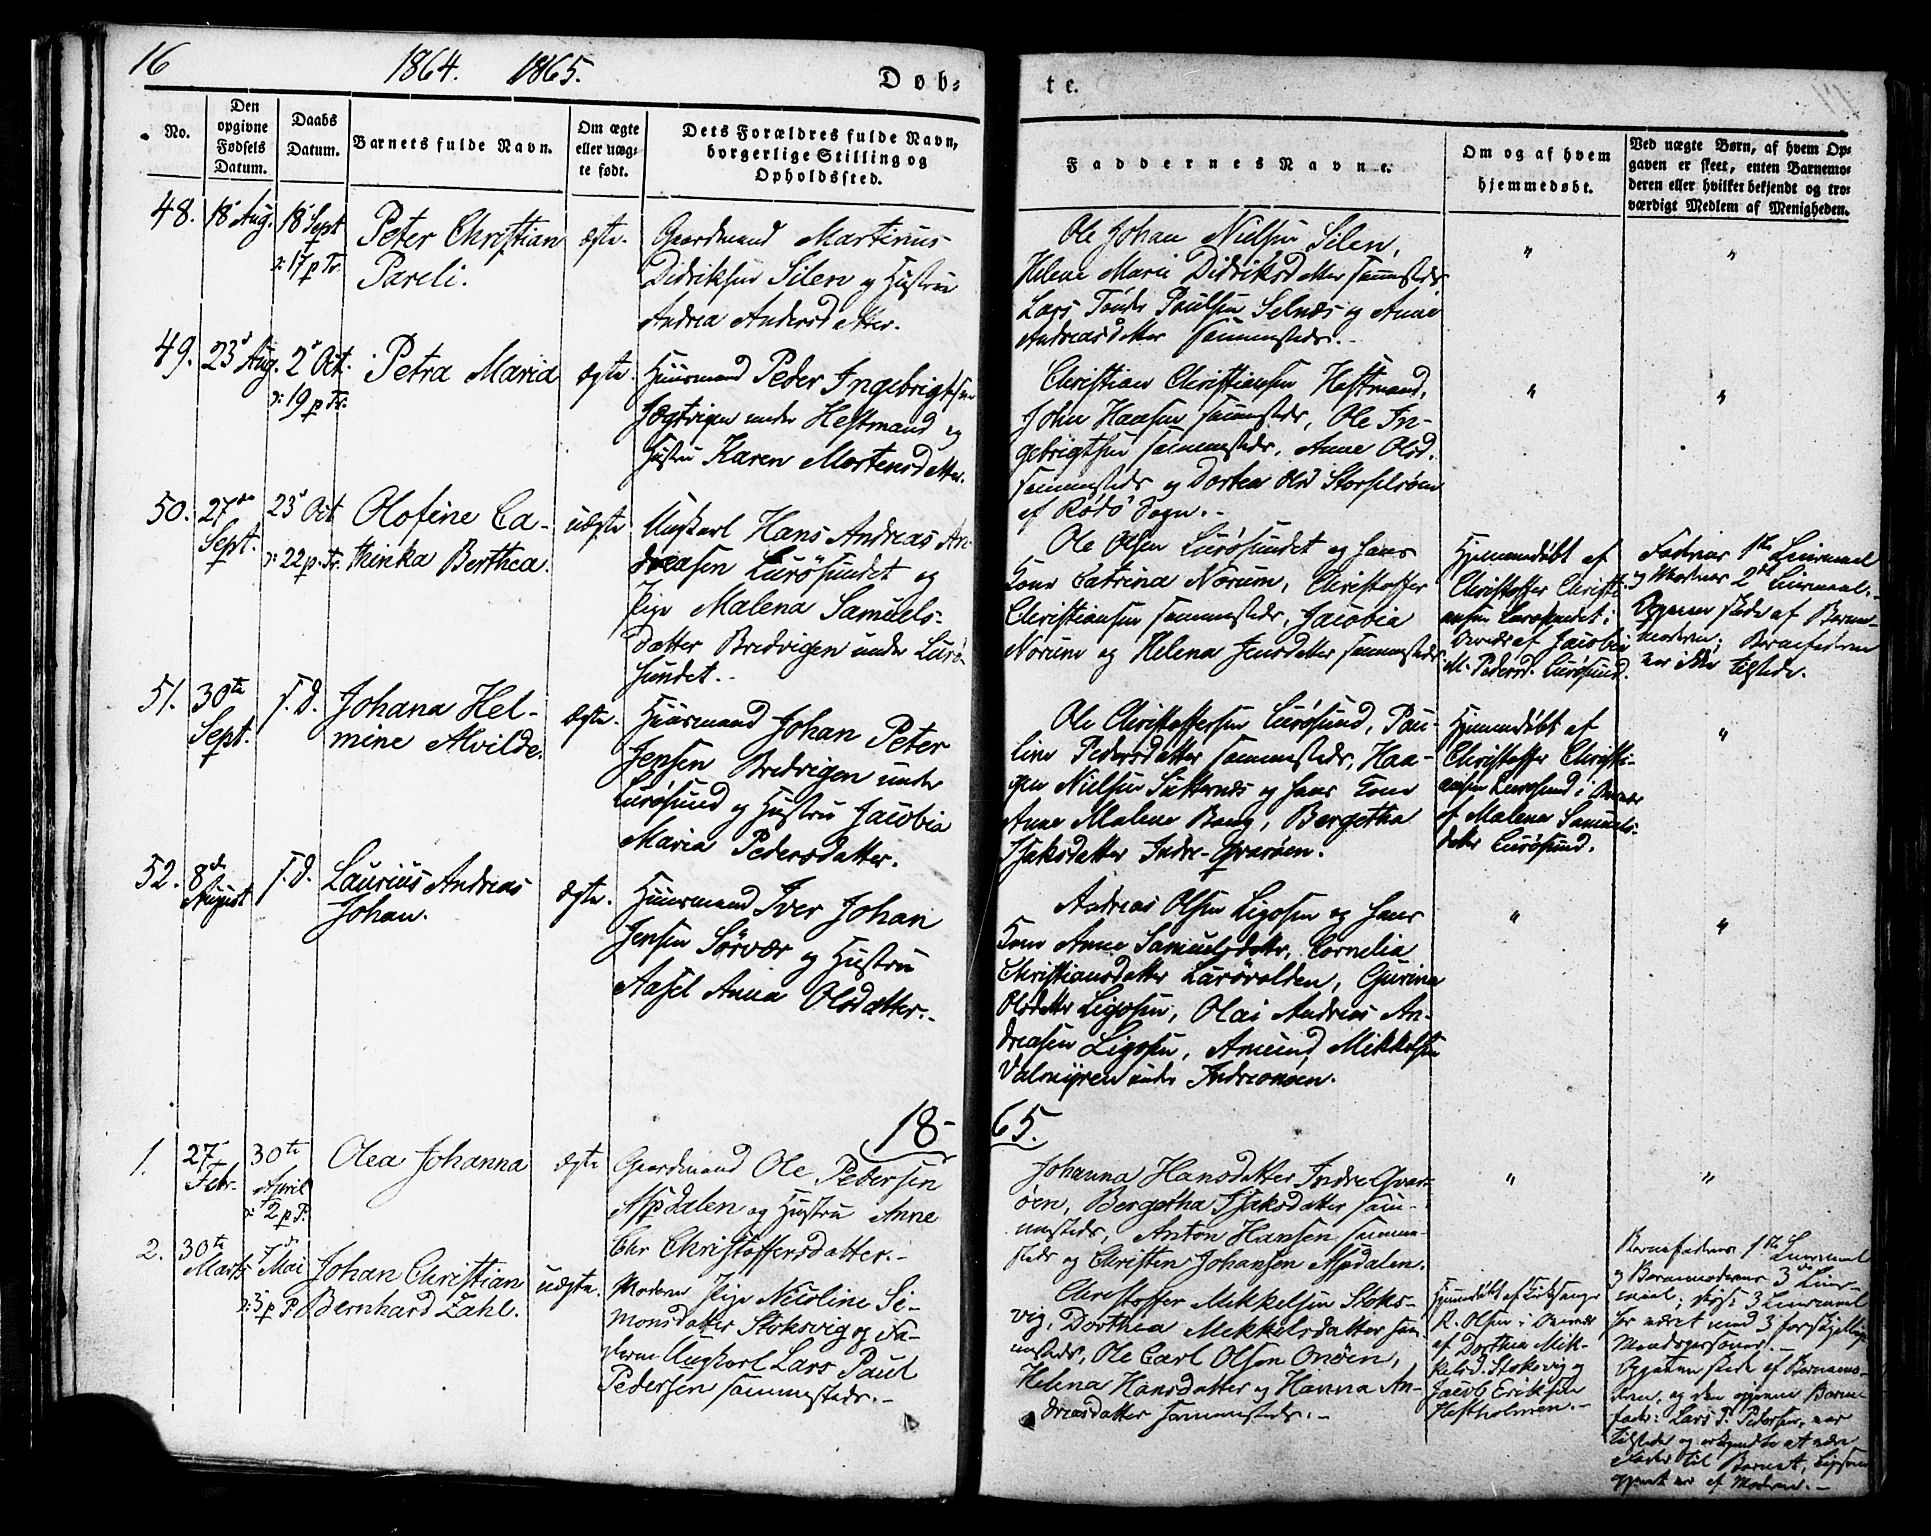 16
1864. 1865.
Døb-
te.
No.
Den opgivne Fødsels Datum.
Daabs Datum.
Barnets fulde Navn.
Om ægte eller uægte født.
Dets Forældres fulde Navn,
borgerlige Stilling og
Opholdssted.
Faddernes Navne.
Om og af hvem
hjemmedøbt.
Ved uægte Børn, af hvem Op-
gaven er skeet, enten Barnemo-
deren eller hvilket bekjendt og tro-
værdigt Medlem af Menigheden.
48.
18 Aug.
18 Sept
17 p Tr.
Peter Christian
Pareli.
ægte.
Gaardmand Martinus
Didriksen Silen og Hustru
Andrea Andersdatter.
Ole Johan Nielsen Silen,
Helene Marie Didriksdatter sammesteds
Lars Tønder Paulsen Selnæs og Anne
Andreasdatter sammesteds.
"
"
49.
23 Aug.
2 Oct.
19 p Tr.
Petra Maria
ægte.
Huusmand Peder Ingebrigtsen
Jægtvigen under Hestmand og
Hustru Karen Mortensdatter.
Christian Christiansen Hestmand,
John Haasen sammesteds, Ole In-
gebrigtsen sammesteds, Anne Olsd.
sammesteds og Dortea Olsd Storselsøen
af Rødø Sogn.
"
"
50.
27de
Sept.
23 Oct
22 p. Tr.
Olofine Ca-
thinka Berthea.
uægte
Ungkarl Hans Andreas An-
dreasen Lurøsundet og
Pige Malena Samuels-
datter Bredvigen under Lurø-
sundet.
Ole Olsen Lurøsundet og hans
Kone Catrina Norum, Christoffer
Christiansen sammesteds, Jacobia
Norum og Helena Jensdatter sammesteds
Hjemmedøbt af
Christoffer Christi-
ansen Lurøsundet i
Overvær af Jacobia
M. Pedersd. Lurøsund.
Faderens 1ste Leiermaal
og Moderens 2det Leiermaal.
Opgaven skede af Barne-
moderen; Barnefaderen
var ikke tilstede.
51.
30te
Sept.
S. D.
Johana Hel-
mine Alvilde.
ægte.
Huusmand Johan Peter
Jensen Bredvigen under
Lurøsund og Hustru Jacobia
Maria Pedersdatter.
Ole Christoffersen Lurøsund, Pau-
line Pedersdatter sammesteds, Haa-
gen Nielsen Sætternæs og hans Kone
Anne Malene Bang, Bergetha
Isaksdatter Indre-Qvarøen.
Hjemmedøbt af
Christoffer Christi-
ansen Lurøsund i Overvær
af Malena Samuels-
datter Lurøsund.
"
52.
8de
August
S. D.
Laurius Andreas
Johan.
ægte.
Huusmand Iver Johan
Jensen Sørvær og Hustru
Aasel Anna Olsdatter.
Andreas Olsen Ligosen og hans
Kone Anne Samuelsdatter, Cornelia
Christiansdatter Lurøvolden, Gurina
Olsdatter Ligosen, Olai Andreas An-
dreasen Ligosen, Amund Mikkelsen
Valmyren under Indreonøen.
"
"
18-
65.
1.
27
Febr.
30te
April
2 p P.
Olea Johanna
ægte
Gaardmand Ole Petersen
Aspdalen og Hustru Anne
Chr Christoffersdatter.
Johanna Hansdatter Indre Qvar-
øen, Bergetha Isaksdatter sam-
mesteds, Anton Hansen samme-
steds og Christen Johansen Aspdalen.
"
"
2.
30te
Marts
7de
Mai
3 p P.
Johan Christian
Bernhard Zahl.
uægte.
Moderen Pige Nicoline Si-
monsdatter Stoksvig og Fa-
deren Ungkarl Lars Paul
Pedersen sammesteds.
Christoffer Mikkelsen Stoks-
vig, Dorthea Mikkelsdatter sam-
mesteds, Ole Carl Olsen Onøen,
Helena Hansdatter og Hanna An-
dreasdatter sammesteds.
Hjemmedøbt af Kirkesanger
R. Olsen i Overvær
af Dorthea Mik-
kelsd. Stoksvig og
Jacob Eriksen
Hestholmen.
Barnefaderens 1ste Leiermaal
og Barnemoderens 3die Leier-
maal; disse 3 Leiermaal
har været med 3 forskjellige
Mandspersoner.
Opgaven skede af Barnemo-
deren, og den opgivne Barne
fader: Lars P. Pedersen, var
tilstede og erkjendte at være
Fader til Barnet,
af Moderen.